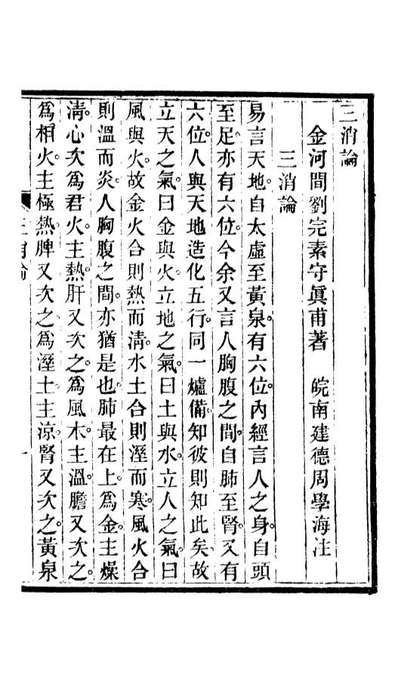 三消論
金河間劉完素守眞甫著　皖南建德周學海注
三消論
易言天地自太虛至黃泉有六位內經言人之身自頭
至足亦有六位今余又言人胸腹之間自肺至腎又有
六位人與天地造化五行同一爐備知彼則知此矣故
立天之氣曰金與火立地之氣曰土與水立人之氣曰
風與火故金火合則熱而清水土合則溼而寒風火合
則溫而炎人胸腹之間亦猶是也肺最在上爲金主燥
清心次爲君火主熱肝又次之爲風木主溫膽又次之
爲相火主極熱脾又次之爲溼土主涼腎又次之黃泉
三消論
一